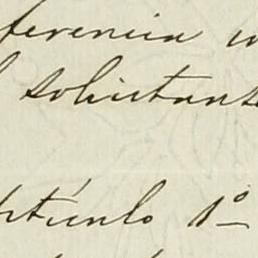 ferencia
solicitante
Artículo 1º